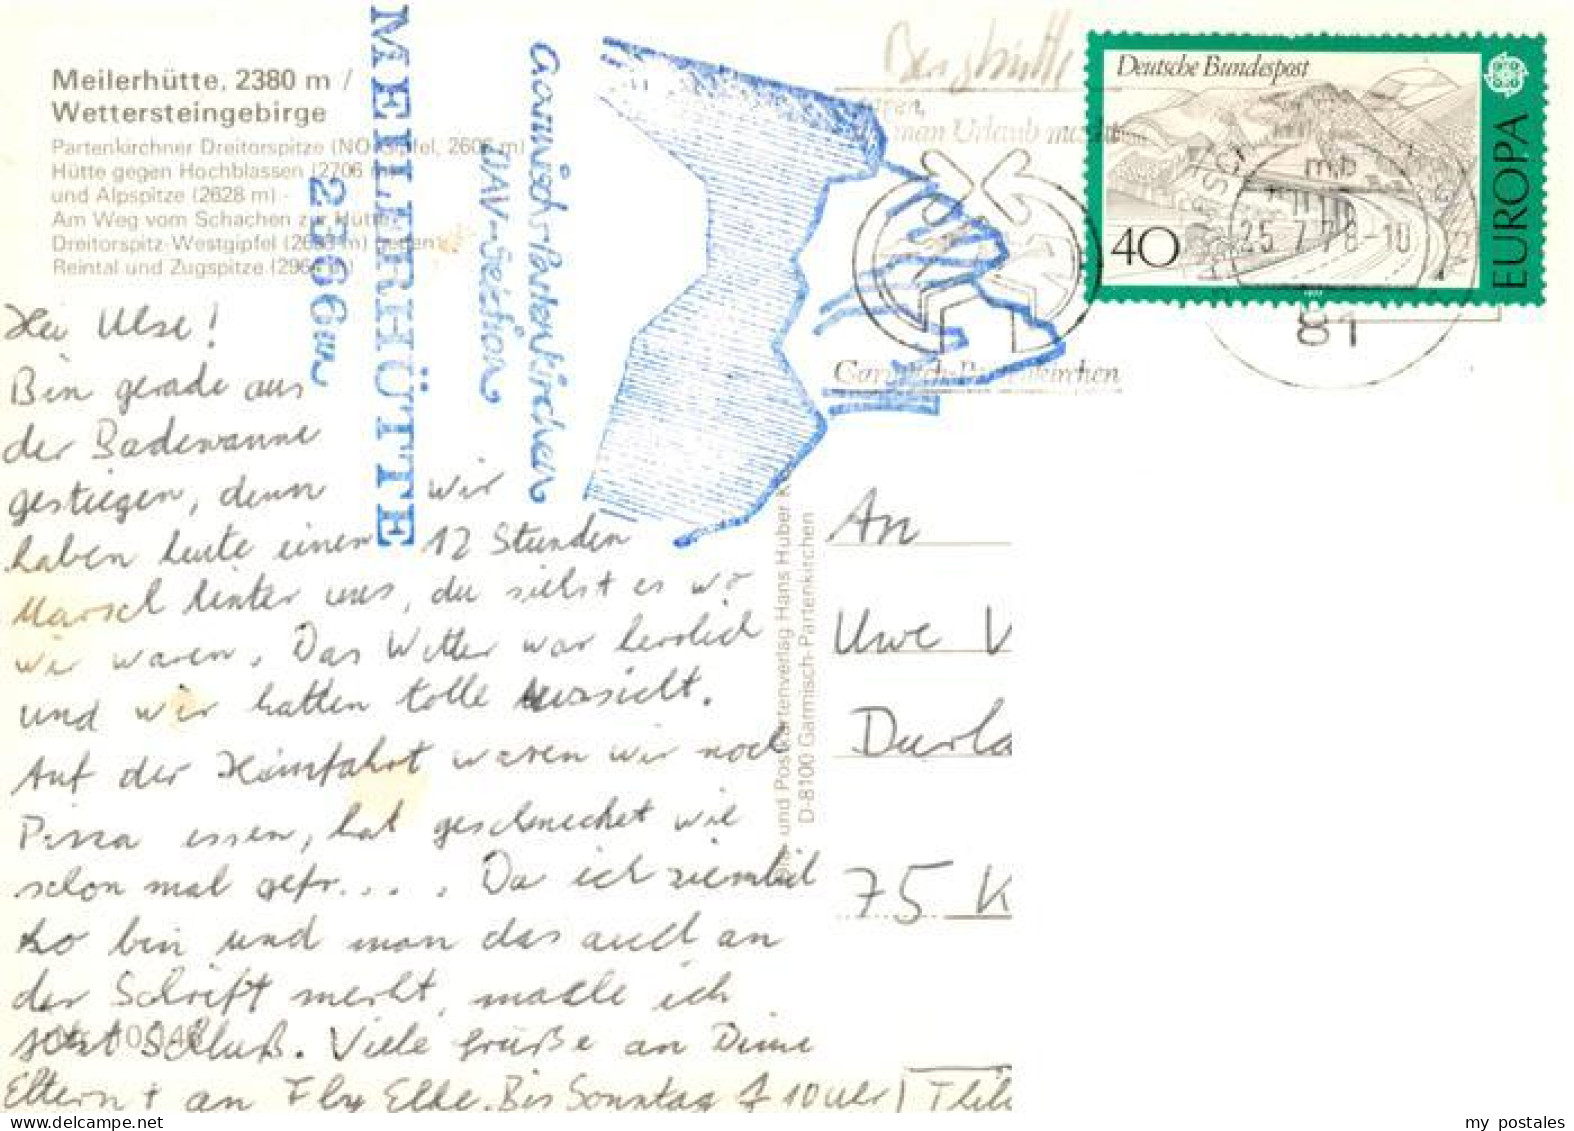 Meilerhütte, 2380 m /
Wettersteingebirge
Partenkirchner Dreitorspitze (NO-Gipfel, 2606 m)
Hütte gegen Hochblassen (2706 m)
und Alpspitze (2628 m) -
Am Weg vom Schachen zur Hütte
Dreitorspitz-Westgipfel (2633 m) gegen
Reintal und Zugspitze (2964 m)
MEILERHÜTTE
2366m
Garmisch-Partenkirchen
DAV-Sektion
Berghütte
man Urlaub macht
Garmisch-Partenkirchen
Deutsche Bundespost
40
EUROPA
mb
25.7.78-10
81
Hei Uwe!
Bin gerade aus
der Badewanne
gestiegen, denn wir
haben heute einen 12 Stunden
Marsch hinter uns, du siehst es wo
wir waren. Das Wetter war herrlich
und wir hatten tolle Aussicht.
Auf der Heimfahrt waren wir noch
Pizza essen, hat geschmecket wie
schon mal gefr.... Da ich ziemlich
ko bin und man das auch an
der Schrift merkt, mache ich
jetzt Schluß. Viele Grüße an Deine
Eltern + an Elke. Bis Sonntag 10 Uhr
und Postkartenverlag Hans Huber K
D-8100 Garmisch-Partenkirchen
An
Uwe V
Durla
75 K
my postales